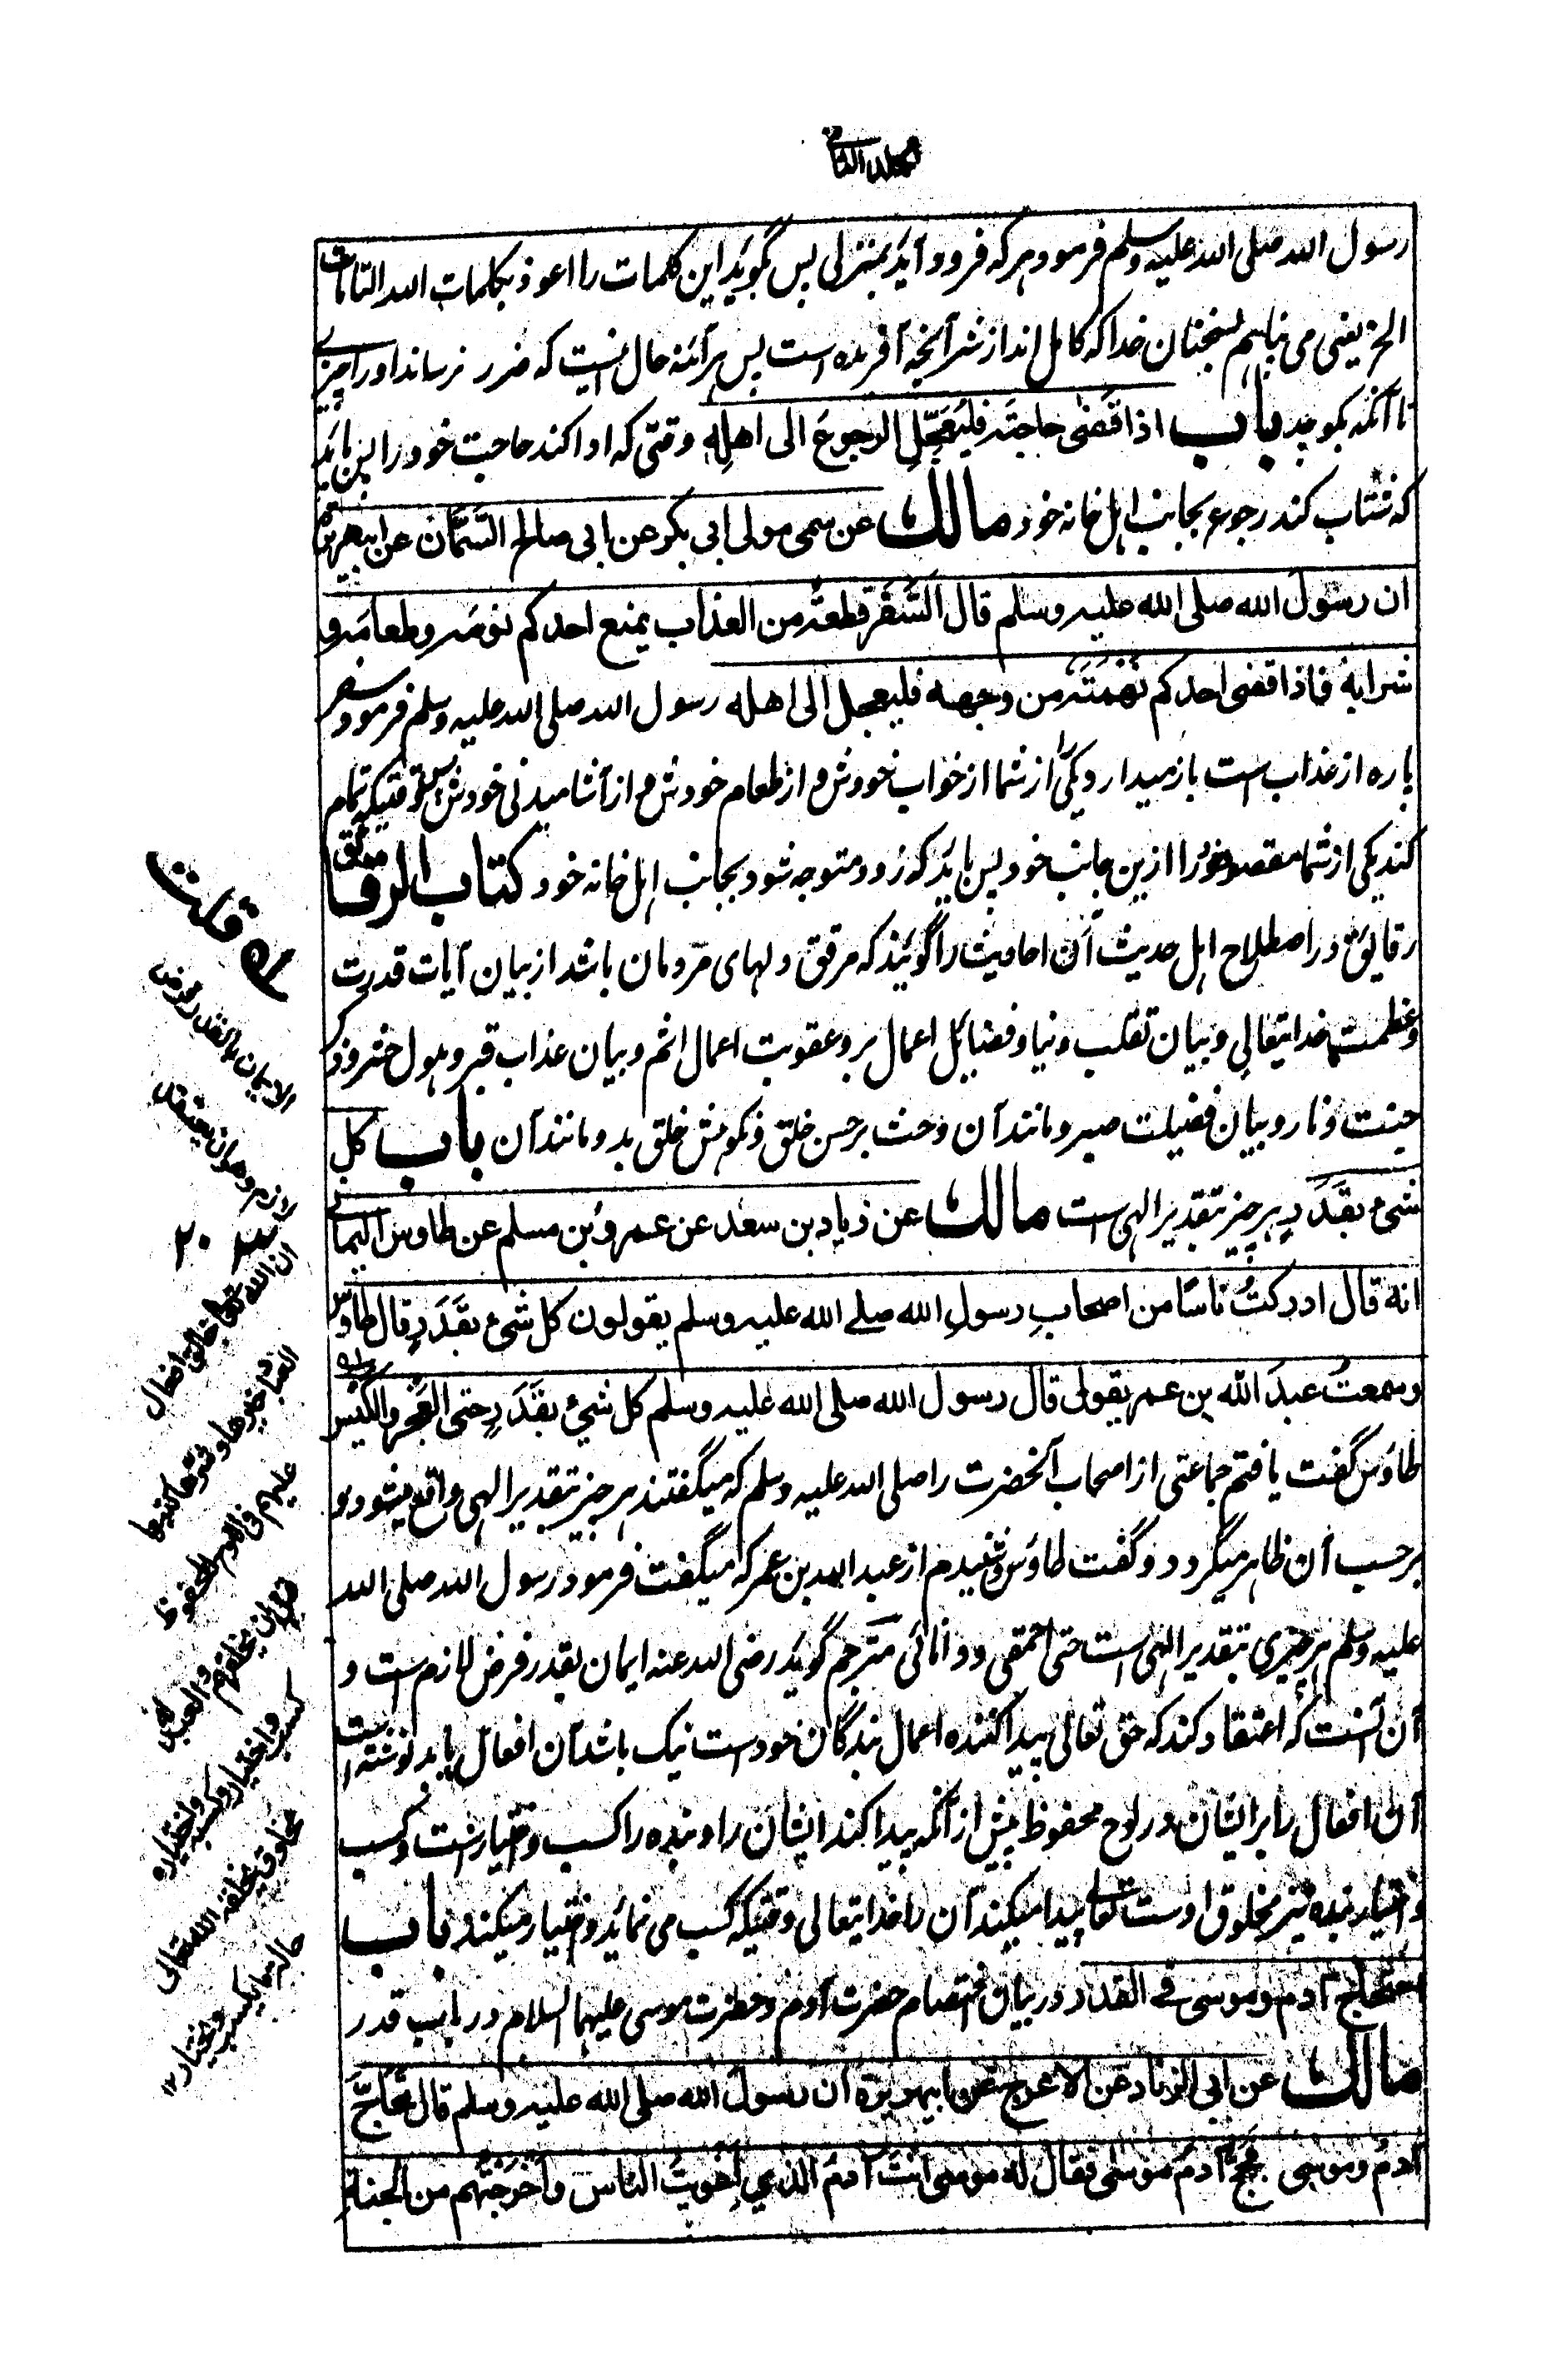 المجلد الثانی
رسول الله صلی الله علیه وسلم فرمود هر که فرود آید بمنزلی پس بگوید این کلمات را اعوذ بکلمات الله التامات
الخ یعنی می پناهم بسخنان خدا که کامل اند از شر آنچه آفریده است پس هرآئنه حال اینست که ضرر نرساند او را چیزے
تا آنکه بکوچد باب اذا قَضٰی حاجتَه فلیُعَجِّلِ الرجوعَ الی اهلِه وقتی که ادا کند حاجت خود را پس باید
که شتاب کند رجوع بجانب اهل خانه خود مالك عن سمی مولی ابی بکر عن ابی صالح السَّمَّان عن ابیهریرة
ان رسول الله صلی الله علیه وسلم قال السَّفَر قطعةٌ من العذاب یمنع احدکم نومَه وطعامَه و
شرابهَ فاذا قضی احدکم نَهْمَتَه من وجهه فلیعجل الی اهله رسول الله صلی الله علیه وسلم فرمود سفر
پاره از عذاب است باز میدارد یکی از شما از خواب خودش و از طعام خودش و از آشامیدنی خودش پس وقتیکه تمام
کند یکی از شما مقصود خود را ازین جانب خود پس باید که زود متوجه شود بجانب اهل خانه خود کتاب الرقائق
رقایق در اصطلاح اهل حدیث آن احادیث را گویند که مرقق دلهای مردمان باشد از بیان آیات قدرت
وعظمت خدایتعالی و بیان تقلب دنیا و فضایل اعمال بر و عقوبت اعمال اثم و بیان عذاب قبر و هول حشر و ذکر
جنت و نار و بیان فضیلت صبر و مانند آن و حث بر حسن خلق و نکوهش خلق بد و مانند آن باب کل
شیء بقَدَرٍ هر چیز بتقدیر الهی است مالك عن زیاد بن سعد عن عمرو بن مسلم عن طاوس الیمانی
انه قال ادرکتُ ناسًا من اصحابِ رسولِ الله صلے الله علیه وسلم یقولون کل شیء بقَدَرٍ قال طاوس
وسمعتُ عبدَ الله بن عمر یقول قال رسول الله صلی الله علیه وسلم کل شیء بقَدَرٍ حتی العَجْز والکَیْس
طاؤس گفت یافتم جماعتی از اصحاب آنحضرت را صلی الله علیه وسلم که میگفتند هر چیز بتقدیر الهی واقع میشود و
برحسب آن ظاهر میگردد و گفت طاؤس و شنیدم از عبد الله بن عمر که میگفت فرمود رسول الله صلی الله
علیه وسلم هر چیزی بتقدیر الهی است حتی احمقی و دانائی مترجم گوید رضی الله عنه ایمان بقدر فرض لازم است و
آن آنست که اعتقاد کند که حق تعالی پیدا کننده اعمال بندگان خود است نیک باشد آن افعال یا بد نوشته است
آن افعال را بر ایشان در لوح محفوظ پیش از آنکه پیدا کند ایشان را و بنده را کسب و اختیار است و کسب
و اختیار بنده نیز مخلوق اوست تعالی پیدا میکند آن را خدایتعالی وقتیکه کسب می نماید و اختیار میکند باب
احتجاج آدم وموسی فی القدر در بیان اختصام حضرت آدم و حضرت موسی علیهما السلام در باب قدر
مالك عن ابی الزناد عن الاعرج عن ابیهریرة ان رسول الله صلی الله علیه وسلم قال تحاجّ
آدمُ وموسی فحجَّ آدمُ موسٰی فقال له موسی انت آدمُ الذي اغویتَ الناس واخرجتَهم من الجنة
قلت
الایمان بالقدر فرض
لازم وهو ان یعتقد
ان الله تعالی خالق افعال
العباد خیرها وشرها کتبها
علیهم فی اللوح المحفوظ
قبل ان یخلقهم وللعباد
کسب واختیار وکسبه واختیاره
مخلوق یخلقه الله تعالی
حالة ما یکسب ویختار ۱۲